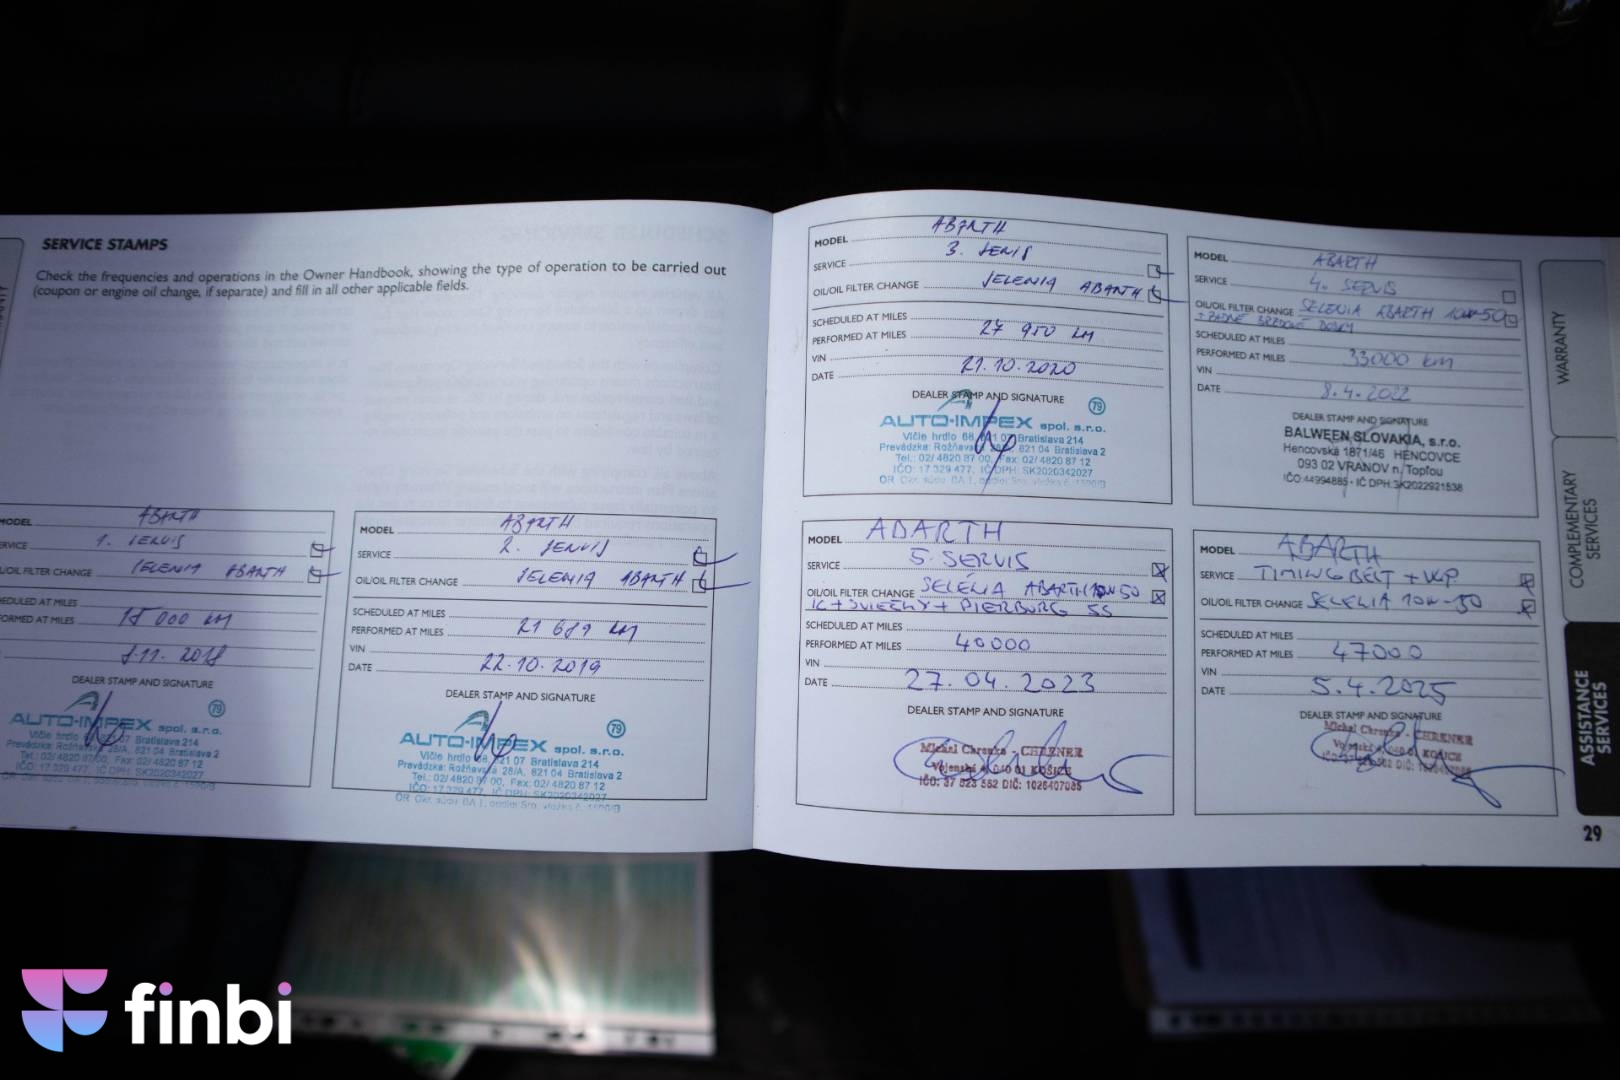 SERVICE STAMPS
Check the frequencies and operations in the Owner Handbook, showing the type of operation to be carried out
(coupon or engine oil change, if separate) and fill in all other applicable fields.
MODEL ABARTH
SERVICE 1. SERVIS
OIL/OIL FILTER CHANGE SELENIA ABARTH
SCHEDULED AT MILES
PERFORMED AT MILES 15 000 KM
8.11. 2018
DEALER STAMP AND SIGNATURE
79
AUTO-IMPEX spol. s.r.o.
Vlčie hrdlo 821 07 Bratislava 214
Prevádzka: Rožňavská 28/A, 821 04 Bratislava 2
Tel.: 02/ 4820 87 00, Fax: 02/ 4820 87 12
IČO: 17 329 477, IČ DPH: SK2020342027
MODEL ABARTH
SERVICE 2. SERVIS
OIL/OIL FILTER CHANGE SELENIA ABARTH
SCHEDULED AT MILES
PERFORMED AT MILES 21 689 KM
VIN
DATE 22.10.2019
DEALER STAMP AND SIGNATURE
79
AUTO-IMPEX spol. s.r.o.
Vlčie hrdlo 68, 821 07 Bratislava 214
Prevádzka: Rožňavská 28/A, 821 04 Bratislava 2
Tel.: 02/ 4820 87 00, Fax: 02/ 4820 87 12
IČO: 17 329 477, IČ DPH: SK2020342027
MODEL ABARTH
SERVICE 3. SERVIS
OIL/OIL FILTER CHANGE SELENIA ABARTH
SCHEDULED AT MILES
PERFORMED AT MILES 27 950 KM
VIN
DATE 21.10.2020
DEALER STAMP AND SIGNATURE
79
AUTO-IMPEX spol. s.r.o.
Vlčie hrdlo 68, 821 07 Bratislava 214
Prevádzka: Rožňavská 28/A, 821 04 Bratislava 2
Tel.: 02/ 4820 87 00, Fax: 02/ 4820 87 12
IČO: 17 329 477, IČ DPH: SK2020342027
MODEL ABARTH
SERVICE 4. SERVIS
OIL/OIL FILTER CHANGE SELENIA ABARTH 10W-50
+ ZADNÉ BRZDOVÉ DOSKY
SCHEDULED AT MILES
PERFORMED AT MILES 33000 km
VIN
DATE 8.4.2022
DEALER STAMP AND SIGNATURE
BALWEEN SLOVAKIA, s.r.o.
Hencovská 1871/46 HENCOVCE
093 02 VRANOV n/Topľou
IČO:44994885 · IČ DPH:SK2022921538
MODEL ABARTH
SERVICE 5. SERVIS
OIL/OIL FILTER CHANGE SELÉNIA ABARTH 10W50
+ SVIEČKY + PIERBURG SS
SCHEDULED AT MILES
PERFORMED AT MILES 40000
VIN
DATE 27.04.2023
DEALER STAMP AND SIGNATURE
Michal Chrenka - CHRENER
Vojenská 040 01 KOŠICE
IČO: 37 823 582 DIČ: 1026407085
MODEL ABARTH
SERVICE TIMING BELT + V.P.
OIL/OIL FILTER CHANGE SELENIA 10W-50
SCHEDULED AT MILES
PERFORMED AT MILES 47000
VIN
DATE 5.4.2025
DEALER STAMP AND SIGNATURE
Michal Chrenka - CHRENER
Vojenská 040 01 KOŠICE
WARRANTY
COMPLEMENTARY
SERVICES
ASSISTANCE
SERVICES
29
finbi